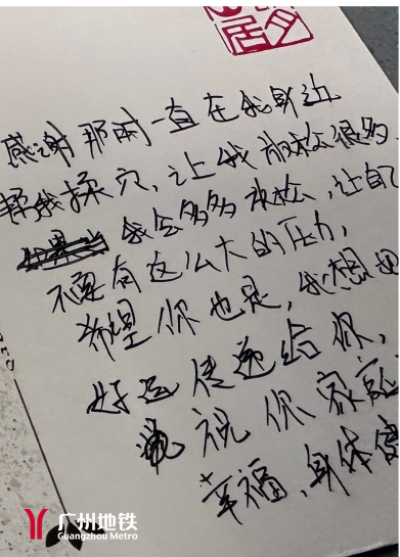 居
感谢那时一直在我身边
帮我揉穴，让我放松很多
我会多多放松，让自己
不要有这么大的压力，
希望你也是，我想把
好运传递给你，
祝你家庭
幸福，身体健
广州地铁
Guangzhou Metro